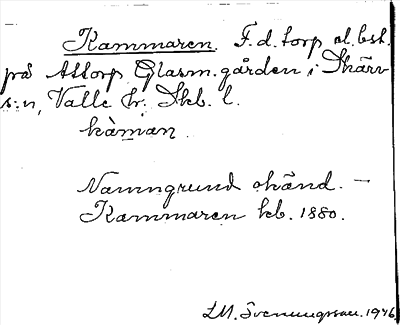 Kammaren. F.d. torp el. bst.
på Attorp Glasm. gården i Skärv
s:n, Valle hr. Skb. l.
kàman.
Namngrund okänd. —
Kammaren kb. 1880.
L.M. Svenungsson. 1946